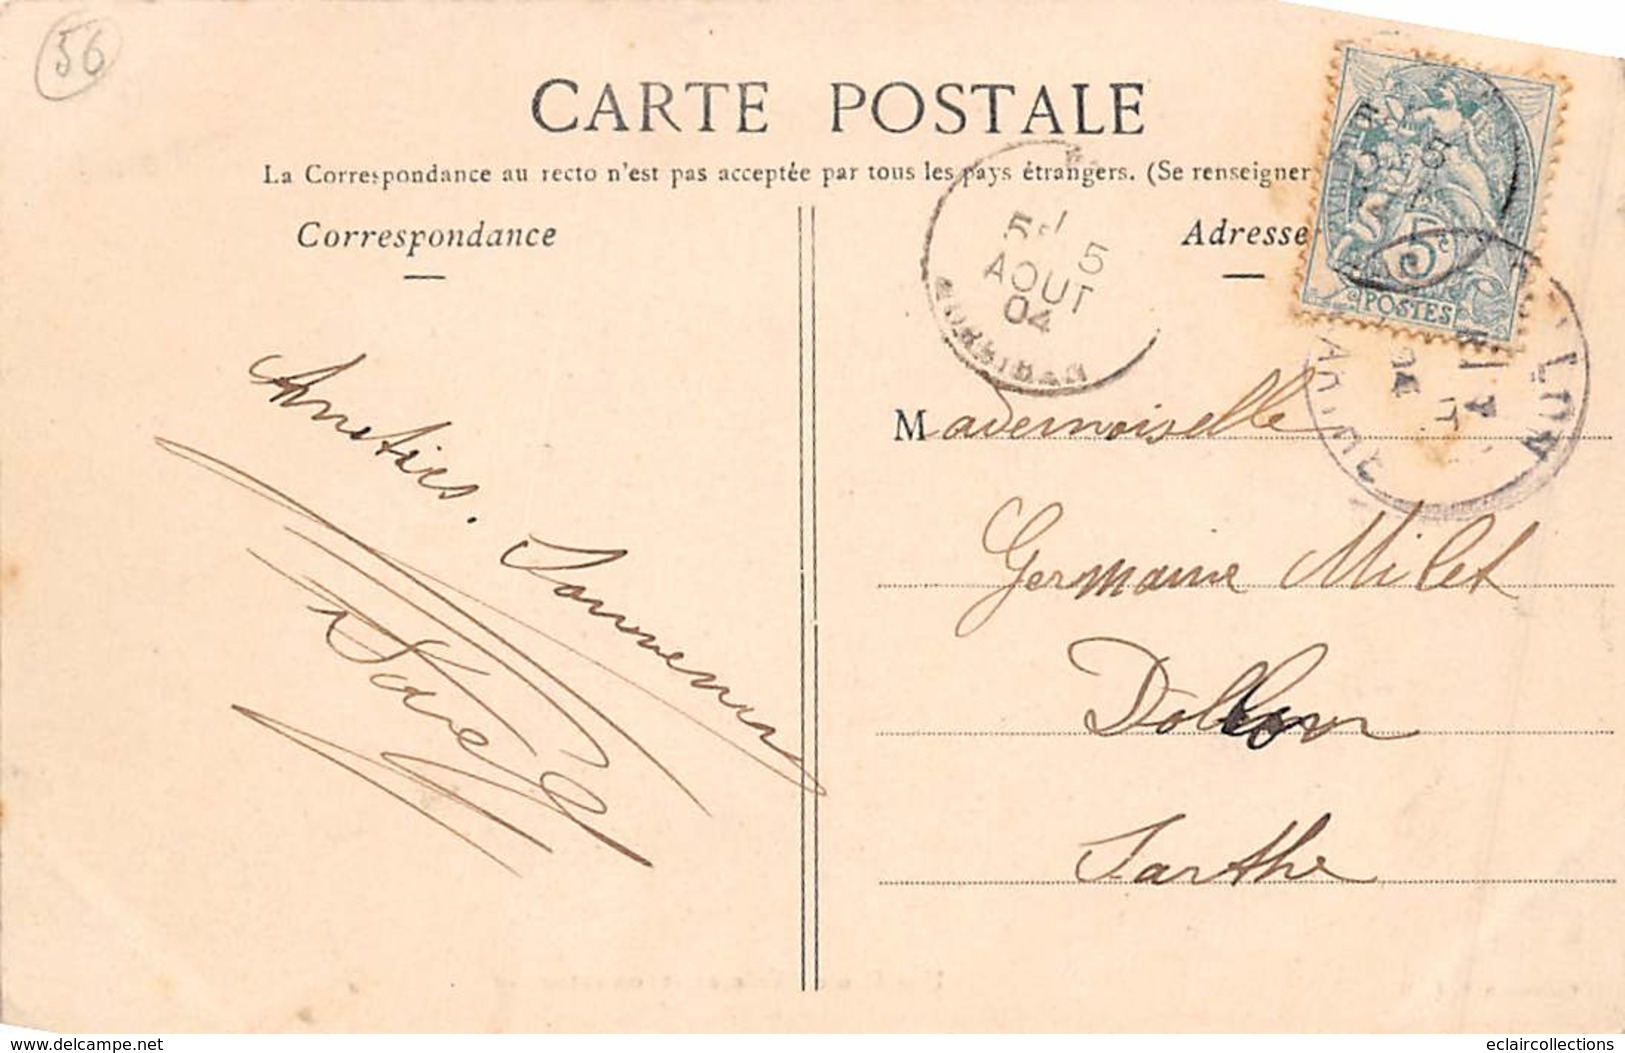 56
CARTE POSTALE
La Correspondance au recto n'est pas acceptée par tous les pays étrangers. (Se renseigner
Correspondance
Adresse
5
AOUT
04
MORBIHAN
5c
POSTES
Amitiés. Souvenir
Mademoiselle
Germaine Milet
Dollon
Sarthe
www.delcampe.net
eclaircollections